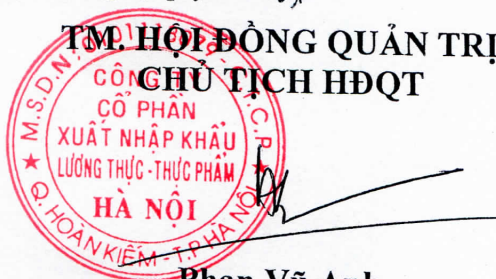 TM. HỘI ĐỒNG QUẢN TRỊ
CHỦ TỊCH HĐQT
CÔNG TY
CỔ PHẦN
XUẤT NHẬP KHẨU
LƯƠNG THỰC - THỰC PHẨM
HÀ NỘI
Q. HOÀN KIẾM - T.P HÀ NỘI
Phan Vũ Anh